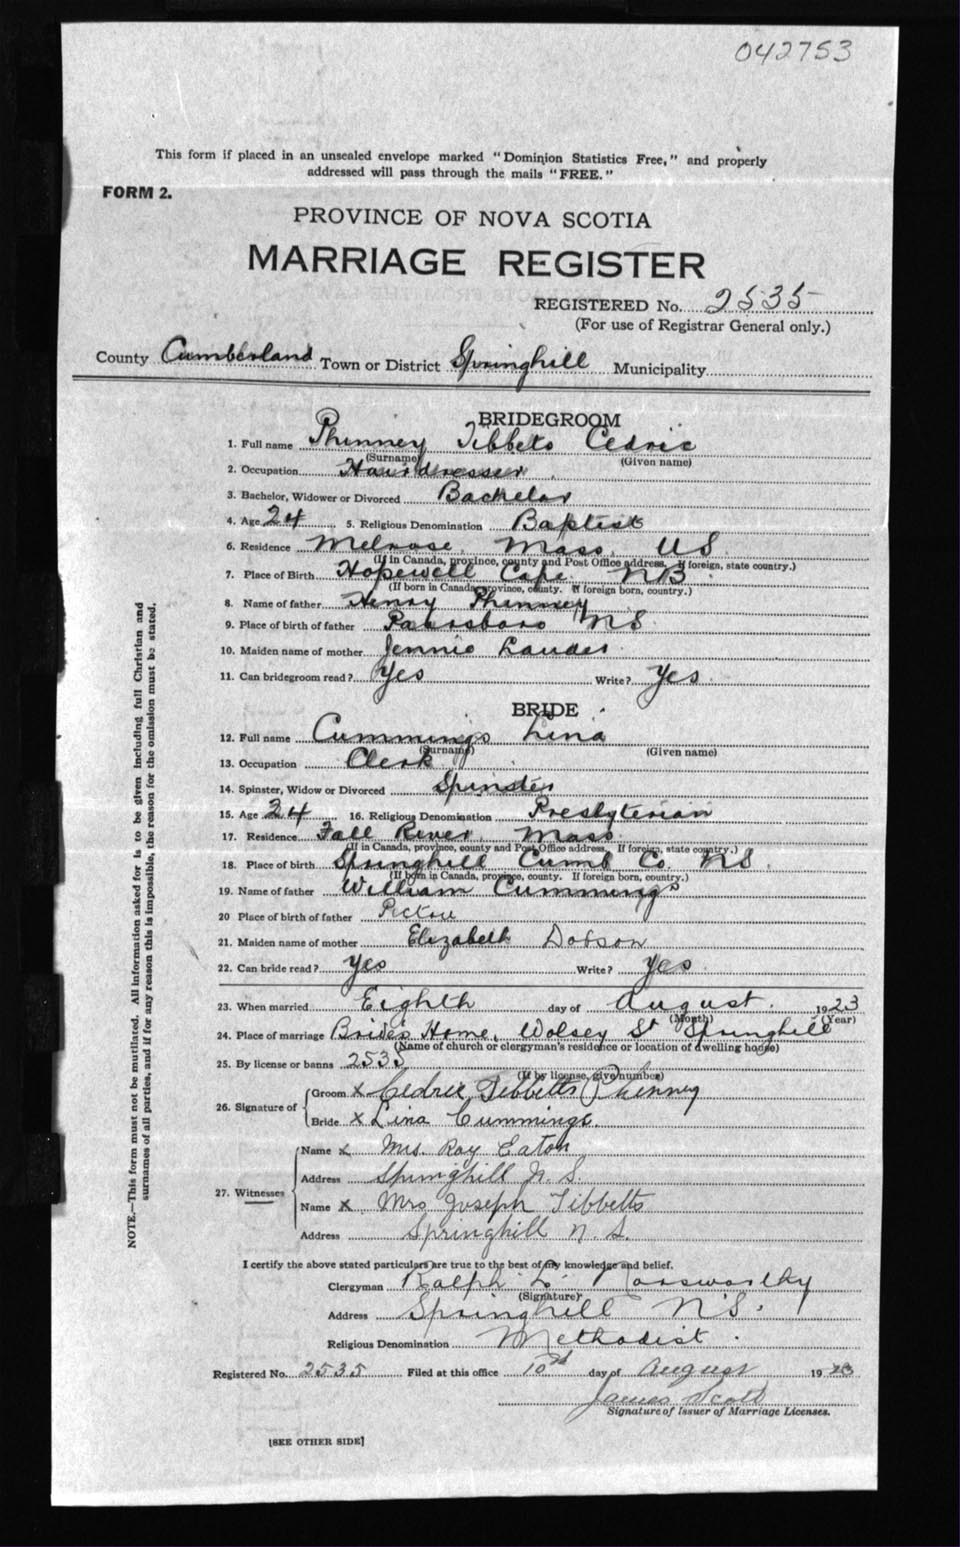 042753
This form if placed in an unsealed envelope marked "Dominion Statistics Free," and properly
addressed will pass through the mails "FREE."
FORM 2.
PROVINCE OF NOVA SCOTIA
MARRIAGE REGISTER
REGISTERED No. 2535
(For use of Registrar General only.)
County Cumberland Town or District Springhill Municipality
BRIDEGROOM
1. Full name Phinney Tibbets Cedric
(Surname) (Given name)
2. Occupation Hairdresser
3. Bachelor, Widower or Divorced Bachelor
4. Age 24 5. Religious Denomination Baptist
6. Residence Melrose, Mass, US
(If in Canada, province, county and Post Office address. If foreign, state country.)
7. Place of Birth Hopewell Cape NB
(If born in Canada, province, county. If foreign born, country.)
8. Name of father Henry Phinney
9. Place of birth of father Parrsboro NS
10. Maiden name of mother Jennie Lauder
11. Can bridegroom read? Yes Write? Yes
BRIDE
12. Full name Cummings Lina
(Surname) (Given name)
13. Occupation Clerk
14. Spinster, Widow or Divorced Spinster
15. Age 24 16. Religious Denomination Presbyterian
17. Residence Fall River, Mass
(If in Canada, province, county and Post Office address. If foreign, state country.)
18. Place of birth Springhill Cumb Co. NS
(If born in Canada, province, county. If foreign born, country.)
19. Name of father William Cummings
20 Place of birth of father Pictou
21. Maiden name of mother Elizabeth Dobson
22. Can bride read? Yes Write? Yes
23. When married Eighth day of August 1923
(Month) (Year)
24. Place of marriage Bride's Home, Wolsey St Springhill
(Name of church or clergyman's residence or location of dwelling house)
25. By license or banns 2535
(If by license, give number)
26. Signature of Groom x Cedric Tibbetts Phinney
Bride x Lina Cummings
27. Witnesses
Name x Mrs. Roy Eaton
Address Springhill N. S.
Name x Mrs Joseph Tibbetts
Address Springhill N. S.
I certify the above stated particulars are true to the best of my knowledge and belief.
Clergyman Ralph L.
(Signature)
Address Springhill N.S.
Religious Denomination Methodist.
Registered No. 2535 Filed at this office 10th day of August 1923
James Scott
Signature of Issuer of Marriage Licenses.
[SEE OTHER SIDE]
NOTE.—This form must not be mutilated. All information asked for is to be given including full Christian and
surnames of all parties, and if for any reason this is impossible, the reason for the omission must be stated.